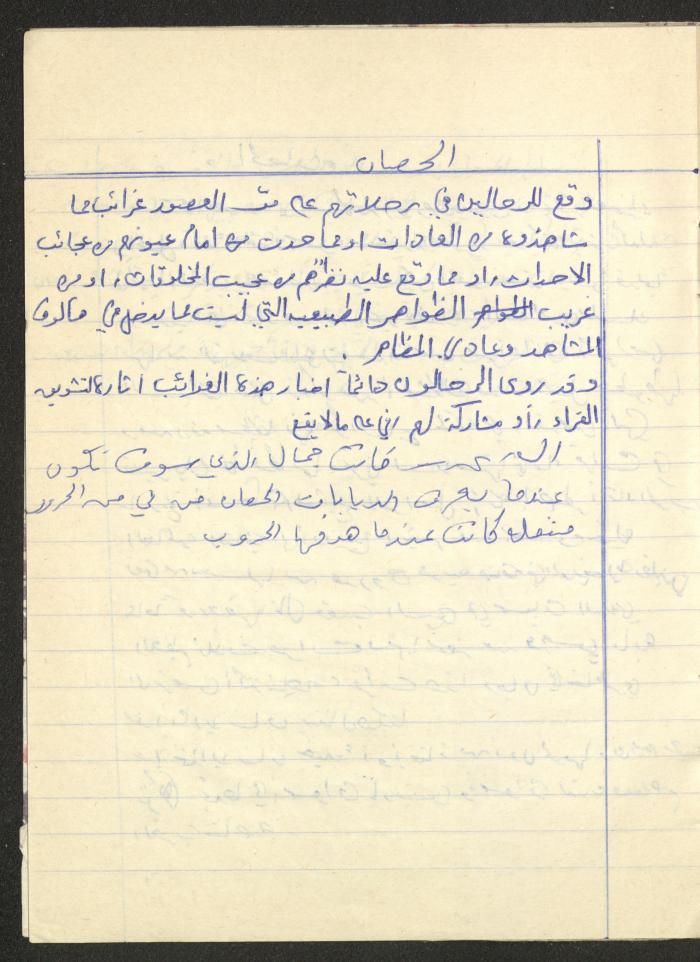 الحصان
وقع للرحالين في رحلاتهم على مت العصور غرائب مما
شاهدوه من العادات او مما حدث من امام عيونهم من عجائب
الاحداث، او مما وقع عليه نظرهم من عجيب المخلوقات، او من
غريب الظواهر الطبيعيه التي ليست مما يدخل في مألوف
المشاهد وعادي المظاهر .
وقد روى الرحالون دائماً اخبار هذه الغرائب اثارة لتشويق
القراء، أو مشاركة لهم في مالا يقع
كانت جمال الذي سوف تكون
عندما الدبابات الحصان من
كانت عندما الحروب